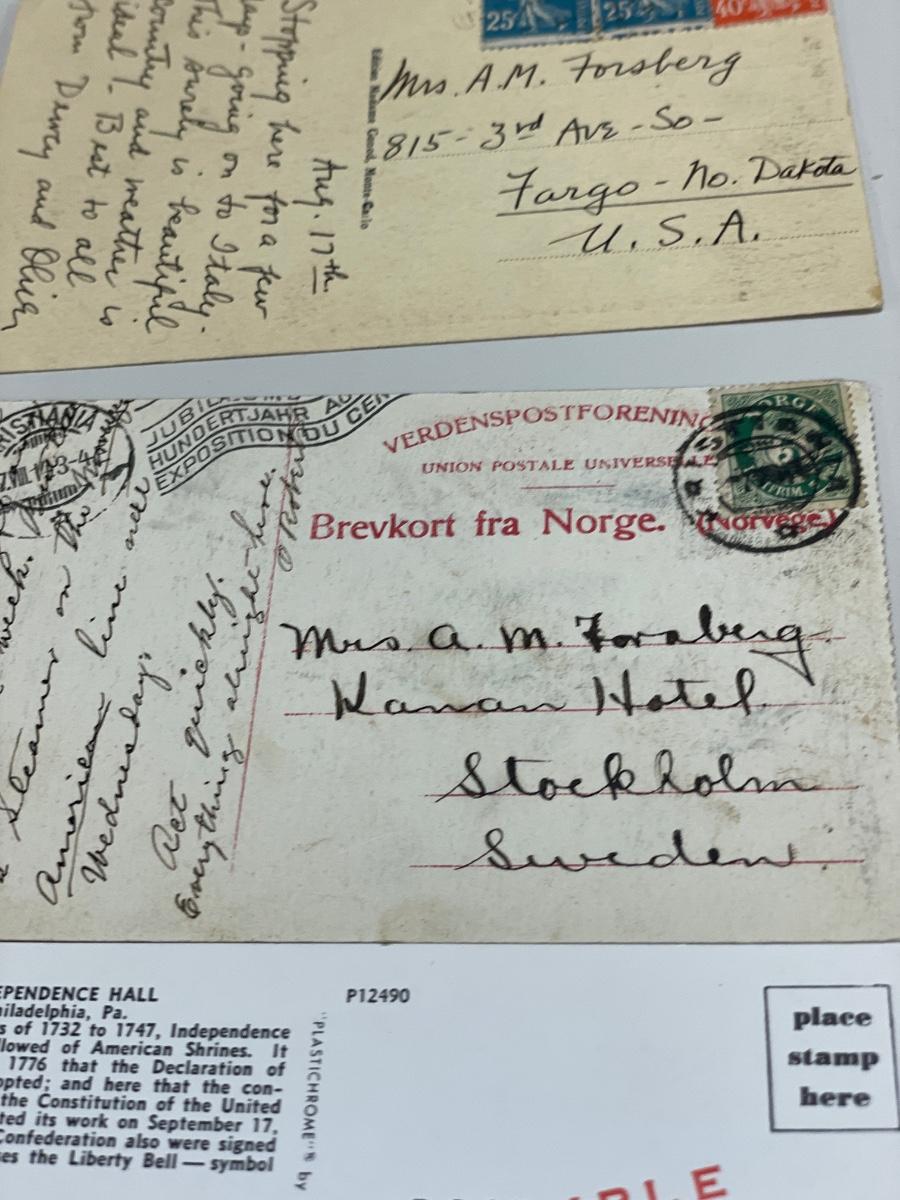 25
25
40
Mrs. A.M. Forsberg
815 - 3rd Ave - So -
Fargo - No. Dakota
U. S. A.
Edition Madame Giraud, Monte-Carlo
Aug. 17th
Stopping here for a few
days - going on to Italy.
This surely is beautiful
country and weather is
ideal. Best to all
from Dewey and
JUBIL
HUNDERTJAHR AU
EXPOSITION DU CEN
ISTIANIA
VERDENSPOSTFORENING
UNION POSTALE UNIVERSELLE
Brevkort fra Norge. (Norvège.)
NORGE
Mrs. A. M. Forsberg
Hotel
Stockholm
Sweden
week.
Steamer on the
American line
Wednesday.
Act quickly.
Everything alright here.
EPENDENCE HALL
hiladelphia, Pa.
s of 1732 to 1747, Independence
llowed of American Shrines. It
1776 that the Declaration of
opted; and here that the con-
the Constitution of the United
ted its work on September 17,
Confederation also were signed
es the Liberty Bell — symbol
P12490
"PLASTICHROME"® by
place
stamp
here